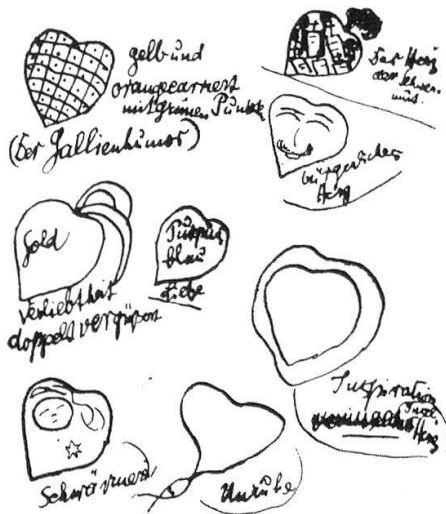 gelb und
orangecarriert
mit grünen Punkten
(Der Gallienhumor)
Das Herz
der Schwer-
mut.
bürgerliches
Herz
Gold
Verliebtheit
doppelt vergrößert
Purpur
blau
Liebe
Inspiration
Herz
Schwärmerei
Unruhe